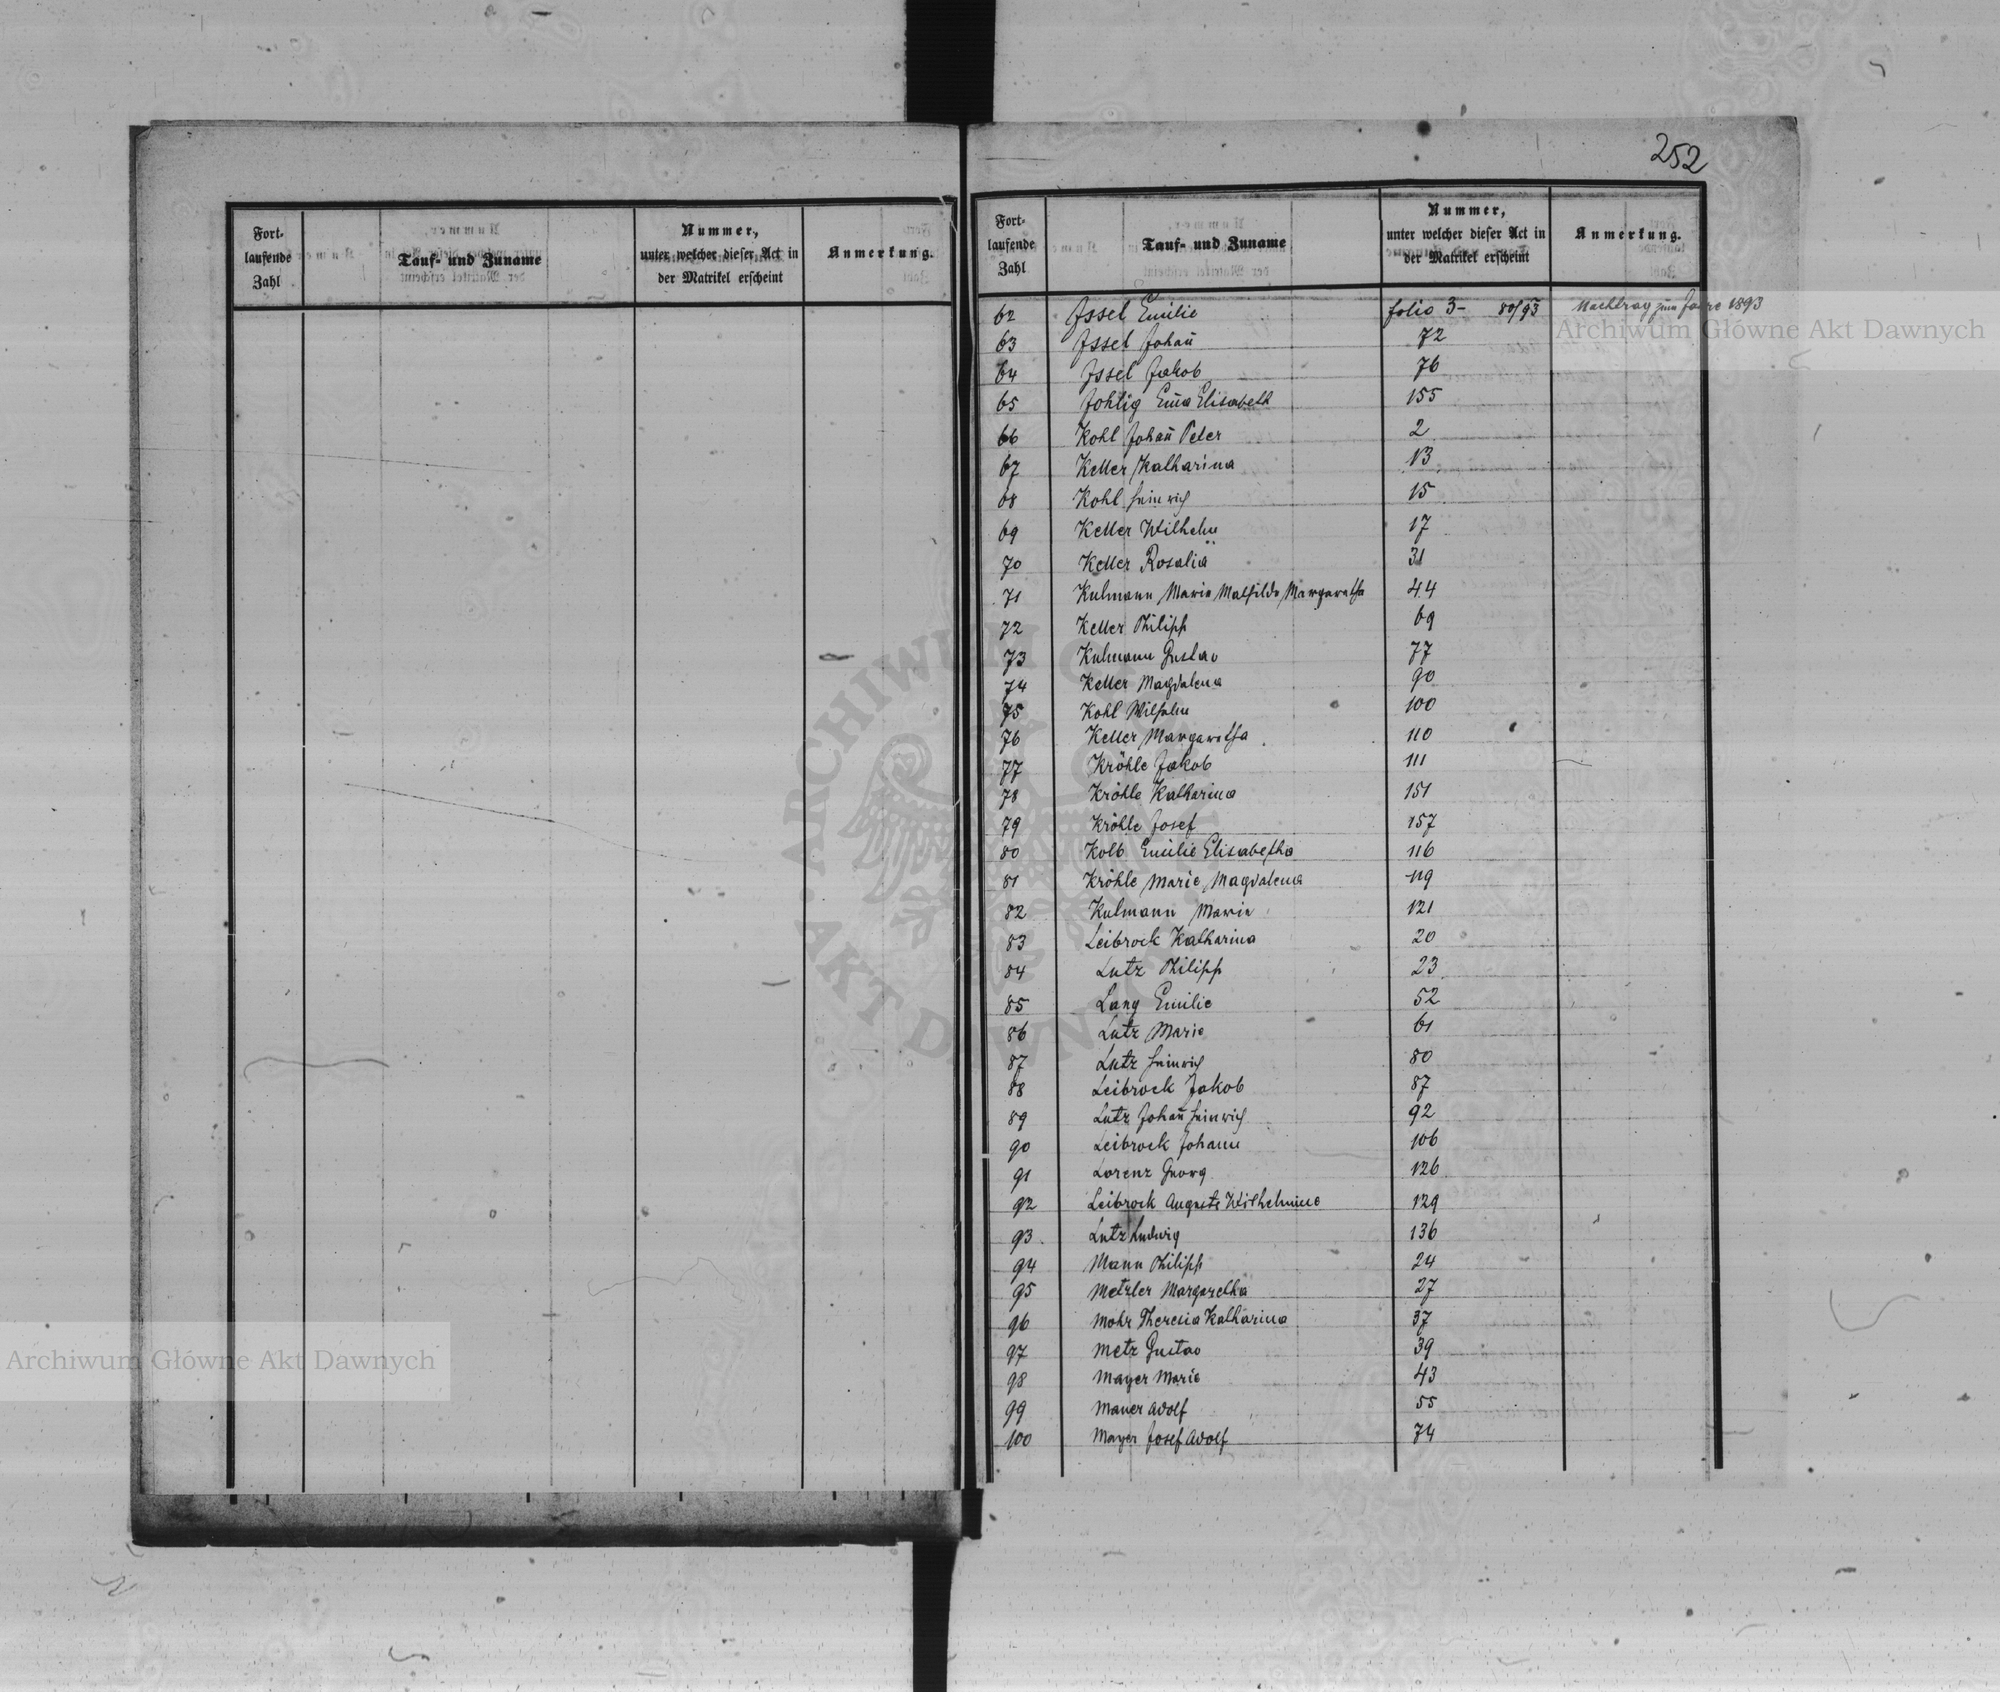 252
Fort-
laufende
Zahl
Tauf- und Zuname
Nummer,
unter welcher dieser Act in
der Matrikel erscheint
Anmerkung.
Fort-
laufende
Zahl
Tauf- und Zuname
Nummer,
unter welcher dieser Act in
der Matrikel erscheint
Anmerkung.
62 Issel Emilie folio 3- 80/93 Nachtrag zum Jahre 1893
63 Issel Johañ 72
64 Issel Jakob 76
65 Johlig Em̃a Elisabeth 155
66 Kohl Johañ Peter 2
67 Keller Katharina 13
68 Kohl Heinrich 15
69 Keller Wilhelm 17
70 Keller Rosalia 31
71 Kulmann Marie Mathilde Margaretha 44
72 Keller Philipp 69
73 Kulmann Gustav 77
74 Keller Magdalena 90
75 Kohl Wilhelm 100
76 Keller Margaretha 110
77 Kröhle Jakob 111
78 Kröhle Katharina 151
79 Kröhle Josef 157
80 Kolb Emilie Elisabetha 116
81 Kröhle Marie Magdalena 119
82 Kulmann Marie 121
83 Leibrock Katharina 20
84 Lutz Philipp 23
85 Lang Emilie 52
86 Lutz Marie 61
87 Lutz Heinrich 80
88 Leibrock Jakob 87
89 Lutz Johañ Heinrich 92
90 Leibrock Johann 106
91 Lorenz Georg 126
92 Leibrock Auguste Wilhelmine 129
93 Lutz Ludwig 136
94 Mann Philipp 24
95 Metzler Margaretha 27
96 Mohr Theresia Katharina 37
97 Metz Gustav 39
98 Mayer Marie 43
99 Mauer Adolf 55
100 Mayer Josef Adolf 74
Archiwum Główne Akt Dawnych
Archiwum Główne Akt Dawnych